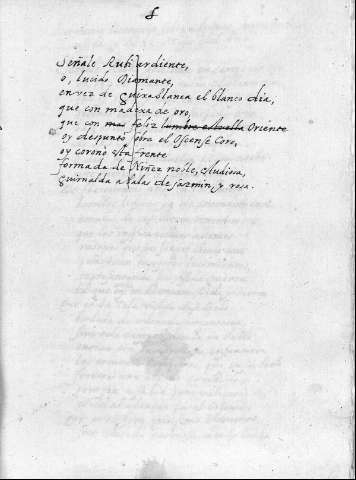 Señale Rubi ardiente,
o, lucido Diamante,
en vez de blanca el blanco dia,
que con madexa de oro,
que con mas feliz lumbre Oriente
oy despuntò sobra el Oscense Coro,
oy coronò esta frente
formada de Niñez noble, estudiosa,
guirnalda a salas de jazmin, y rosa.